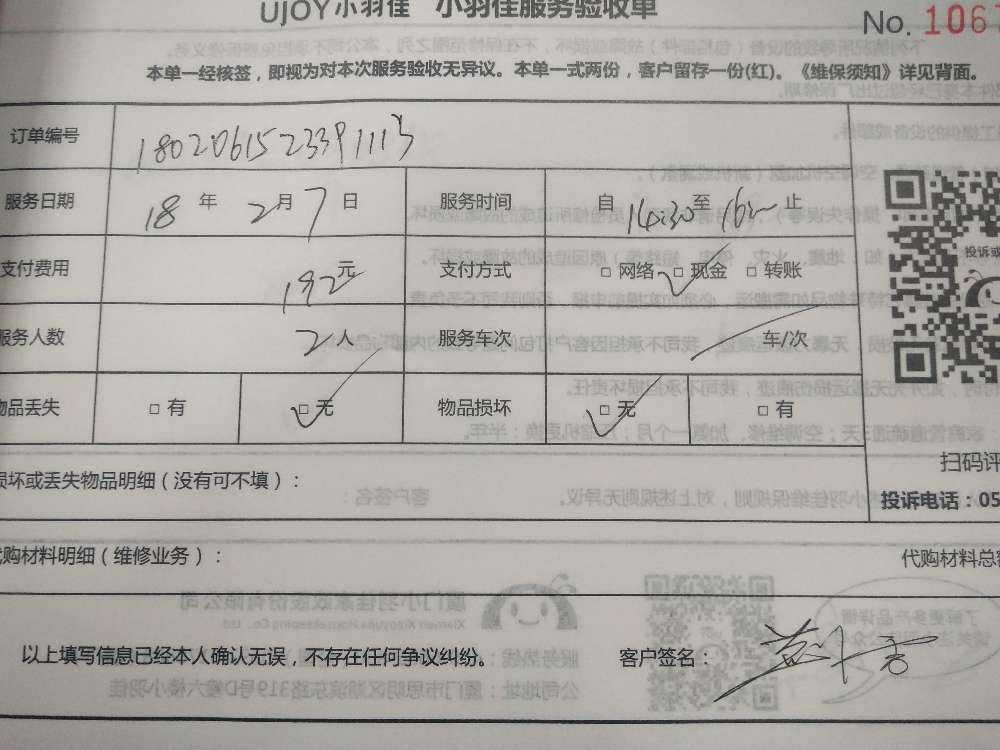 UJOY小羽佳 小羽佳服务验收单
No. 106
本单一经核签，即视为对本次服务验收无异议。本单一式两份，客户留存一份(红)。《维保须知》详见背面。
订单编号 1802061523391113
服务日期 18年2月7日 服务时间 自14:30至16:—止
支付费用 192元 支付方式 □网络 □现金 □转账
服务人数 2人 服务车次 车/次
物品丢失 □有 □无 物品损坏 □无 □有
投诉或
扫码评
损坏或丢失物品明细（没有可不填）：
投诉电话：05
代购材料明细（维修业务）： 代购材料总
以上填写信息已经本人确认无误，不存在任何争议纠纷。 客户签名：